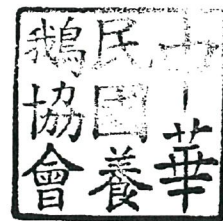 中華
民國養
鵝協會